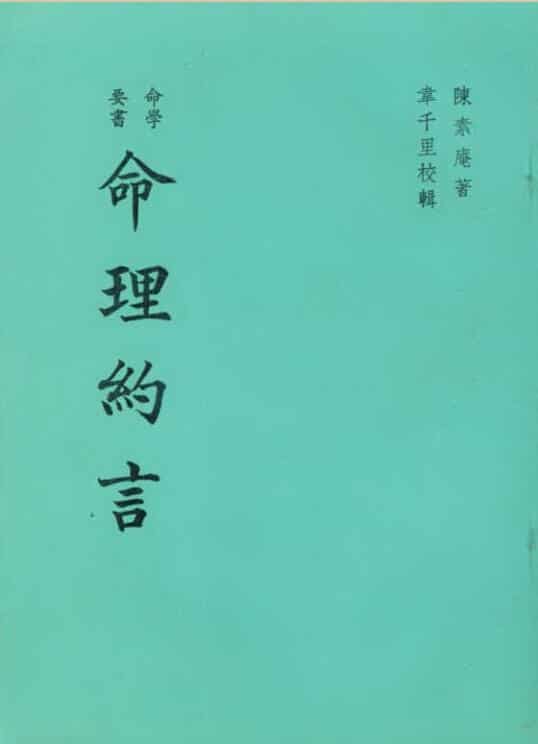 陳素庵著
韋千里校輯
命學
要書
命理約言